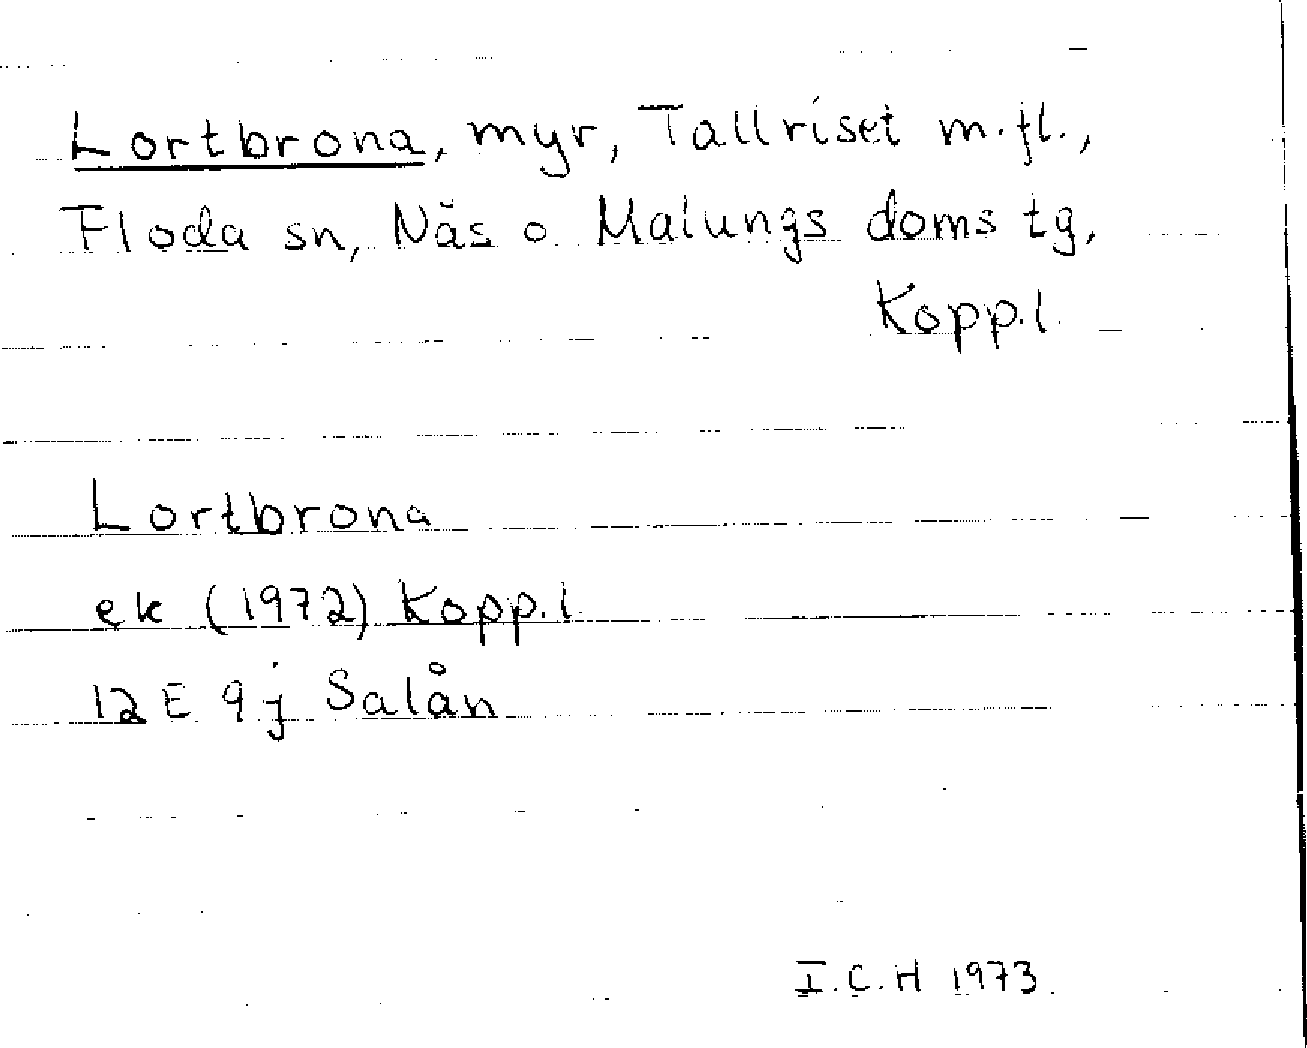 Lortbrona, myr, Tallriset m.fl.,
Floda sn, Nås o. Malungs doms tg,
Kopp.l.
Lortbrona
ek (1972) Kopp.l.
12 E 9 j Salån
I.C.H 1973.